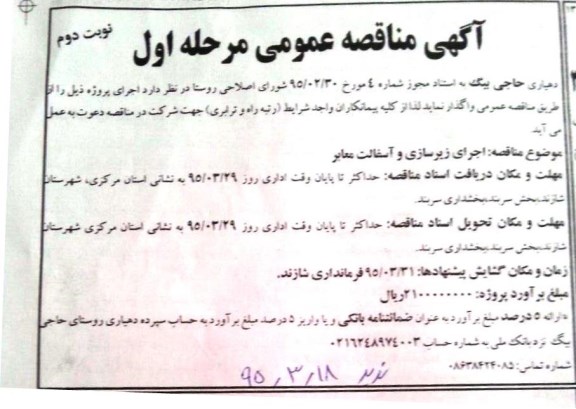 نوبت دوم
آگهی مناقصه عمومی مرحله اول
دهیاری حاجی بیگ به استناد مجوز شماره ۴ مورخ ۹۵/۰۲/۳۰ شورای اصلاحی روستا در نظر دارد اجرای پروژه ذیل را از
طریق مناقصه عمومی واگذار نماید لذا از کلیه پیمانکاران واجد شرایط (رتبه راه و ترابری) جهت شرکت در مناقصه دعوت به عمل
می آید.
موضوع مناقصه: اجرای زیرسازی و آسفالت معابر
مهلت و مکان دریافت اسناد مناقصه: حداکثر تا پایان وقت اداری روز ۹۵/۰۳/۲۹ به نشانی استان مرکزی، شهرستان
شازند،بخش سربند،بخشداری سربند.
مهلت و مکان تحویل اسناد مناقصه: حداکثر تا پایان وقت اداری روز ۹۵/۰۳/۲۹ به نشانی استان مرکزی شهرستان
شازند،بخش سربند،بخشداری سربند.
زمان و مکان گشایش پیشنهادها: ۹۵/۰۳/۳۱ فرمانداری شازند.
مبلغ برآورد پروژه: ۲۱۰۰۰۰۰۰۰۰ریال
*ارائه ۵ درصد مبلغ برآورد به عنوان ضمانتنامه بانکی و یا واریز ۵ درصد مبلغ برآورد به حساب سپرده دهیاری روستای حاجی
بیگ نزد بانک ملی به شماره حساب ۰۲۱۶۲۴۸۹۷۴۰۰۳
شماره تماس: ۰۸۶۳۸۴۲۴۰۸۵
۹۵/۳/۱۸